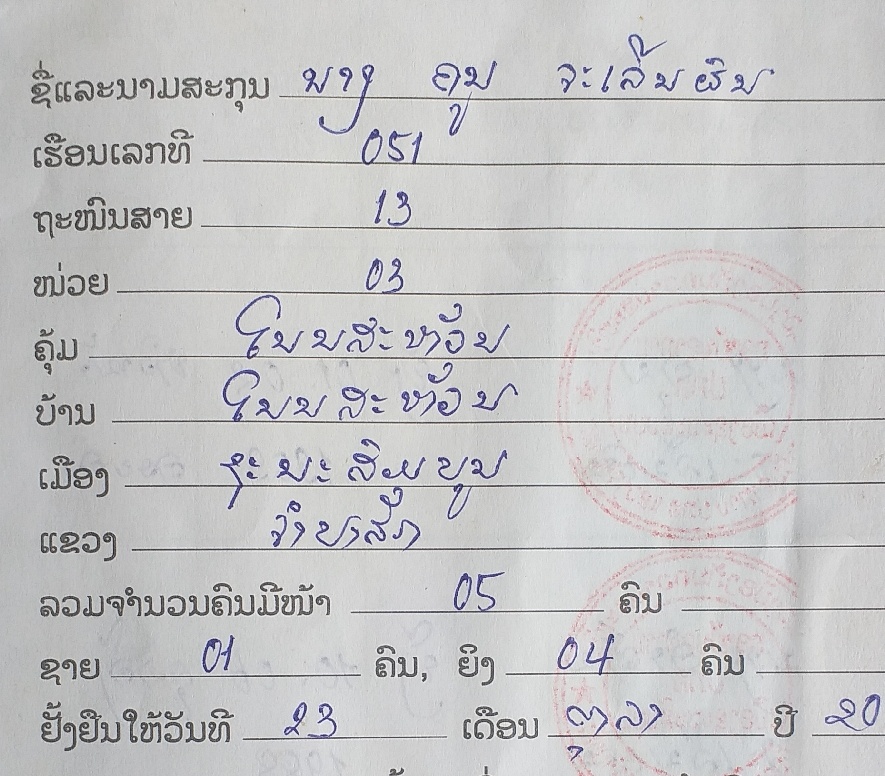 ຊື່ແລະນາມສະກຸນ ນາງ ຄູນ ຈະເລີນຜົນ
ເຮືອນເລກທີ 051
ຖະໜົນສາຍ 13
ໜ່ວຍ 03
ຄຸ້ມ ໂນນສະຫວັນ
ບ້ານ ໂນນສະຫວັນ
ເມືອງ ຊະນະສົມບູນ
ແຂວງ ຈຳປາສັກ
ລວມຈຳນວນຄົນມີໜ້າ 05 ຄົນ
ຊາຍ 01 ຄົນ, ຍິງ 04 ຄົນ
ຢັ້ງຢືນໃຫ້ວັນທີ 23 ເດືອນ ຕຸລາ ປີ 20